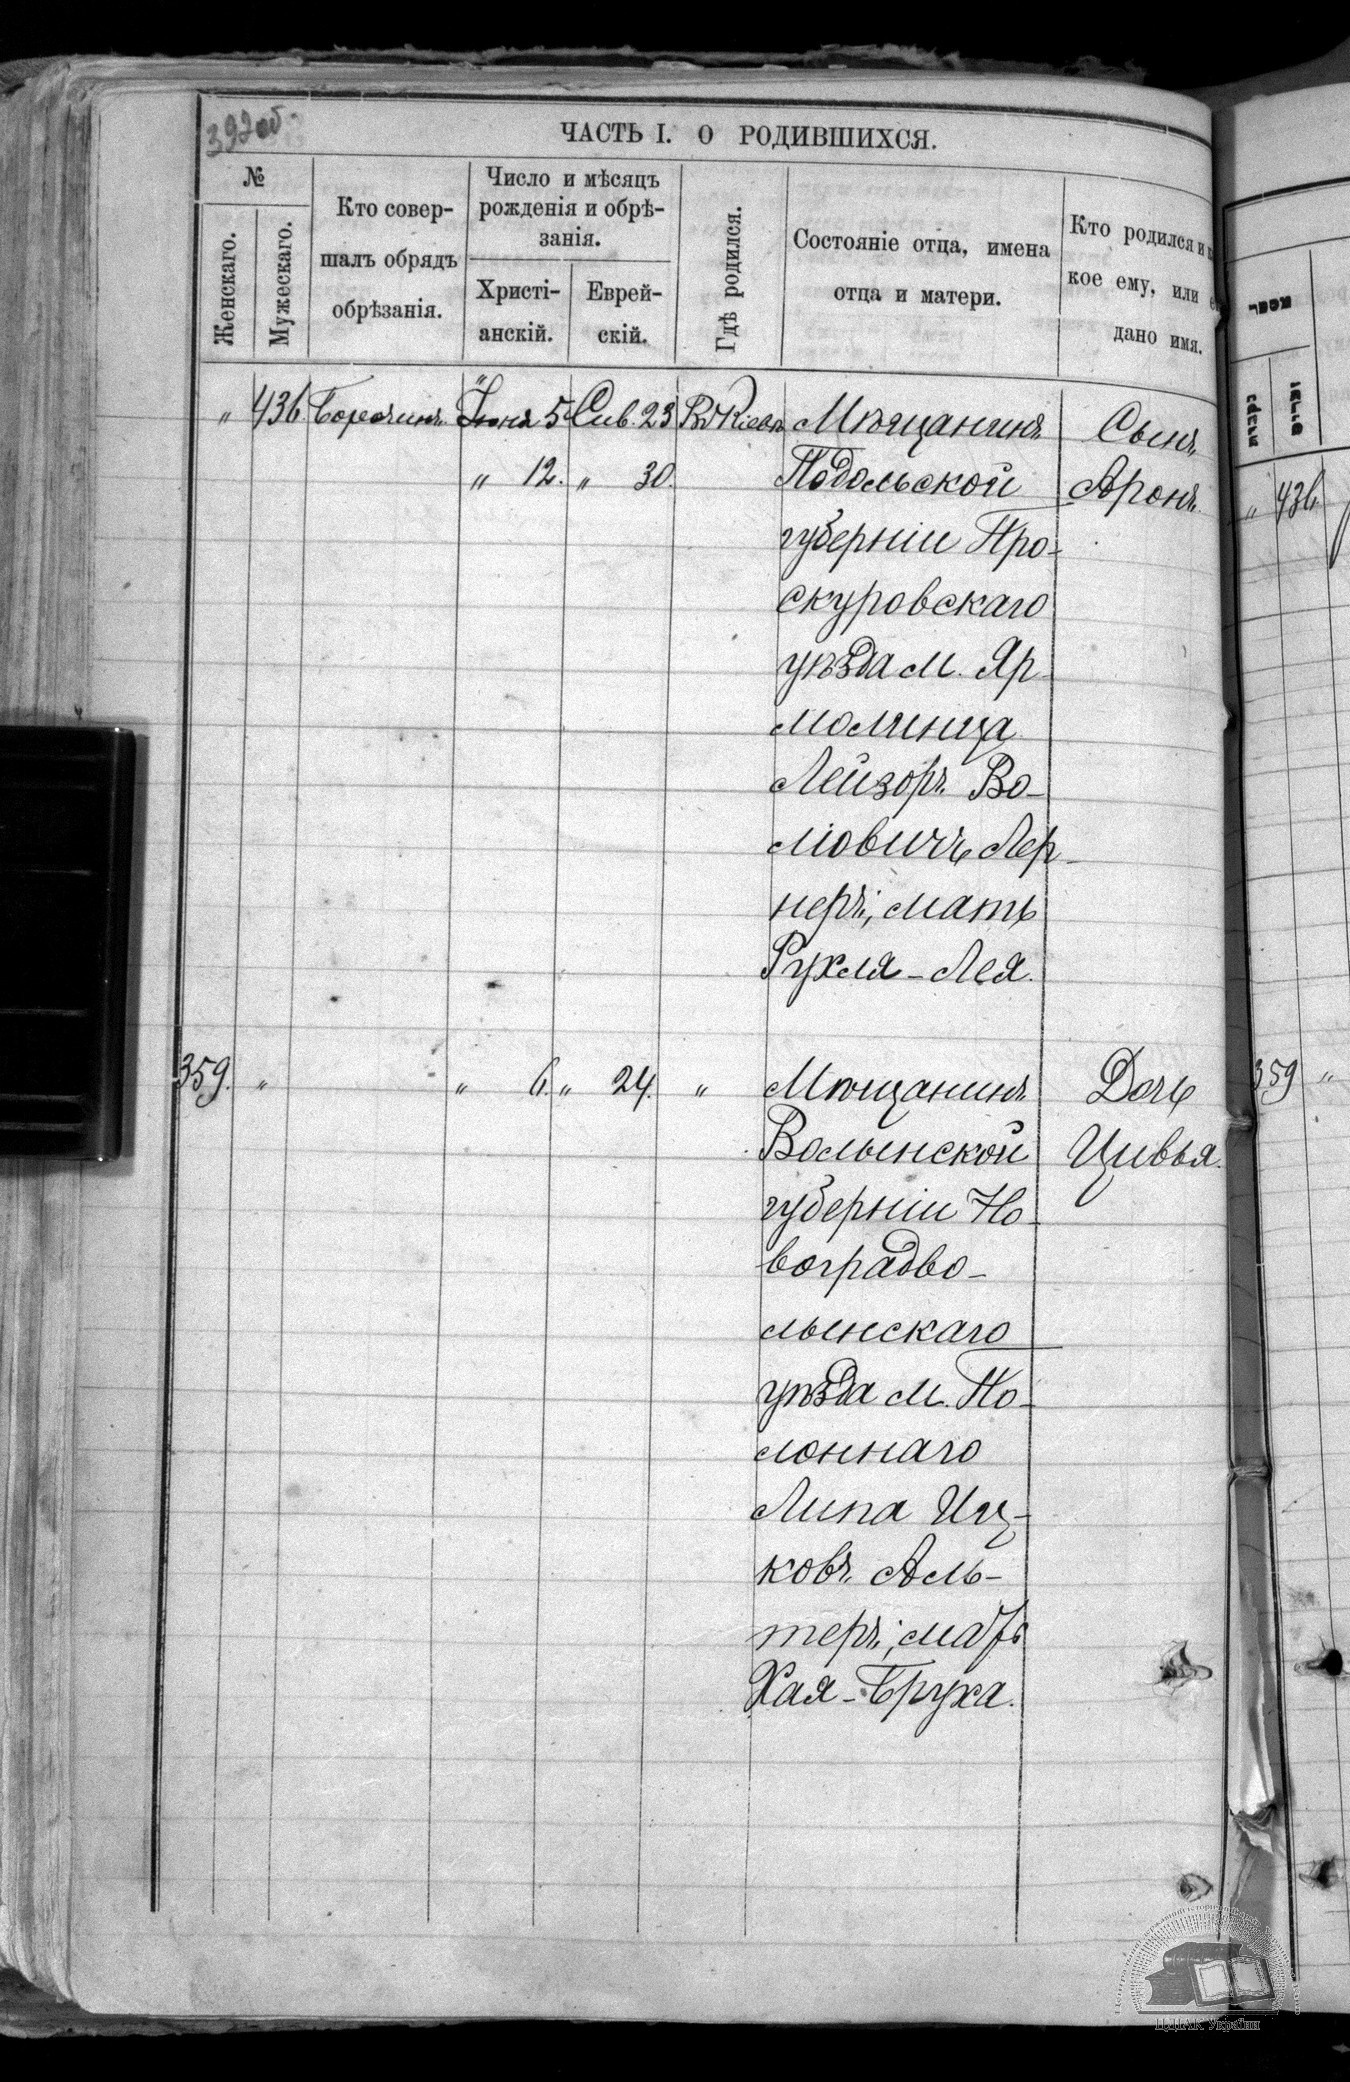 392об.
ЧАСТЬ I. О РОДИВШИХСЯ.
№
Женскаго.
Мужескаго.
Кто совер-
шалъ обрядъ
обрѣзанія.
Число и мѣсяцъ
рожденія и обрѣ-
занія.
Христі-
анскій.
Еврей-
скій.
Гдѣ родился.
Состояніе отца, имена
отца и матери.
Кто родился и
кое ему, или
дано имя.
" 436. Іюня 5 Сив. 23 Въ Кіевѣ Мѣщанинъ Сынъ
" 12. " 30. Подольской Аронъ.
губерніи Про-
скуровскаго
уѣзда м. Яр-
молинца
Лейзоръ Во-
льовичъ Лер-
неръ, мать
Рухля-Лея.
359. " " 6. " 24. " Мѣщанинъ Дочь
Волынской Цивья.
губерніи Но-
воградво-
лынскаго
уѣзда м. По-
лоннаго
Липа Иц-
ковъ Аль-
теръ, мать
Хая-Бруха.
" 436.
359 "
ЦДІАК України